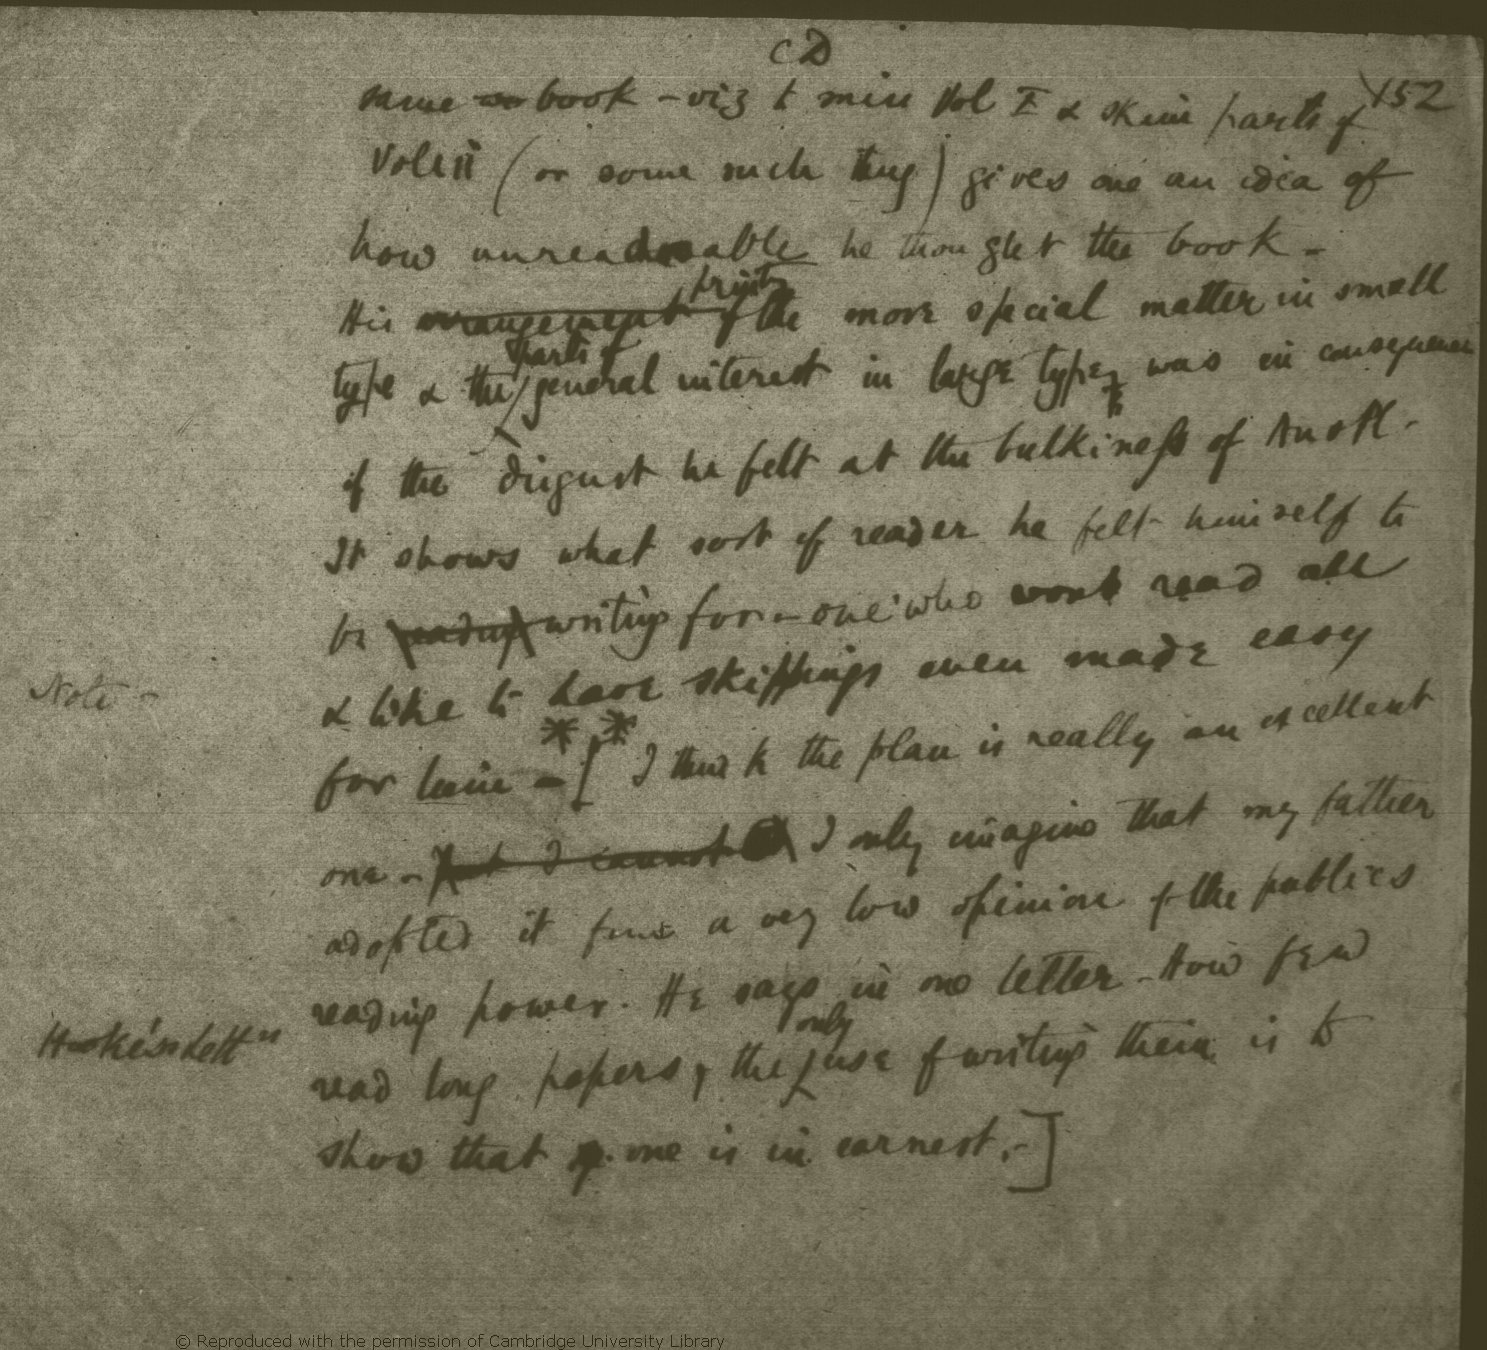 CD
152
same so book – viz to miss Vol I & skim parts of
Vol II (or some such thing) gives one an idea of
how unreadable he thought the book –
printing
His arrangement of the more special matter in small
parts of
type & the general interest in large type, was in consequence
of the disgust he felt at the bulkiness of An & Pl –
It shows what sort of reader he felt himself to
be reading writing for – one who wont read all
& like to have skippings even made easy
Note –
for him – [ I think the plan is really an excellent
one – but I cannot I only imagine that my father
adopted it from a very low opinion of the publics
reading power. He says in one letter – How few
only
Hooker's Letters
read long papers, the use of writing them is to
show that one is in earnest. – ]
© Reproduced with the permission of Cambridge University Library